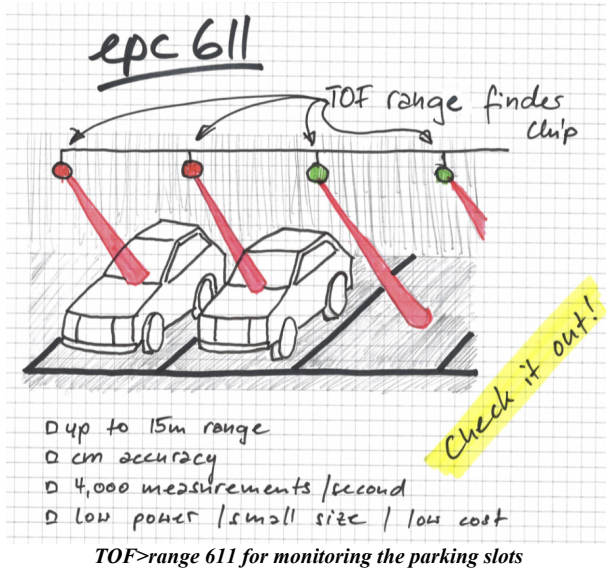 epc 611
TOF range finder
chip
check it out!
up to 15m range
cm accuracy
4,000 measurements / second
low power / small size / low cost
TOF>range 611 for monitoring the parking slots